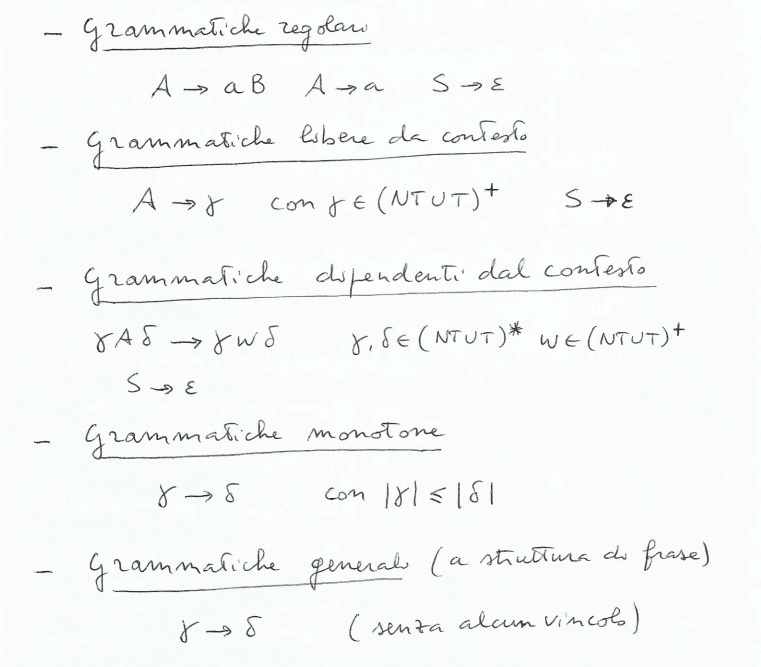 - Grammatiche regolari
A → aB A → a S → ε
- Grammatiche libere da contesto
A → γ con γ ∈ (NT∪T)⁺ S → ε
- Grammatiche dipendenti dal contesto
γAδ → γwδ γ, δ ∈ (NT∪T)* w ∈ (NT∪T)⁺
S → ε
- Grammatiche monotone
γ → δ con |γ| ≤ |δ|
- Grammatiche generali (a struttura di frase)
γ → δ (senza alcun vincolo)